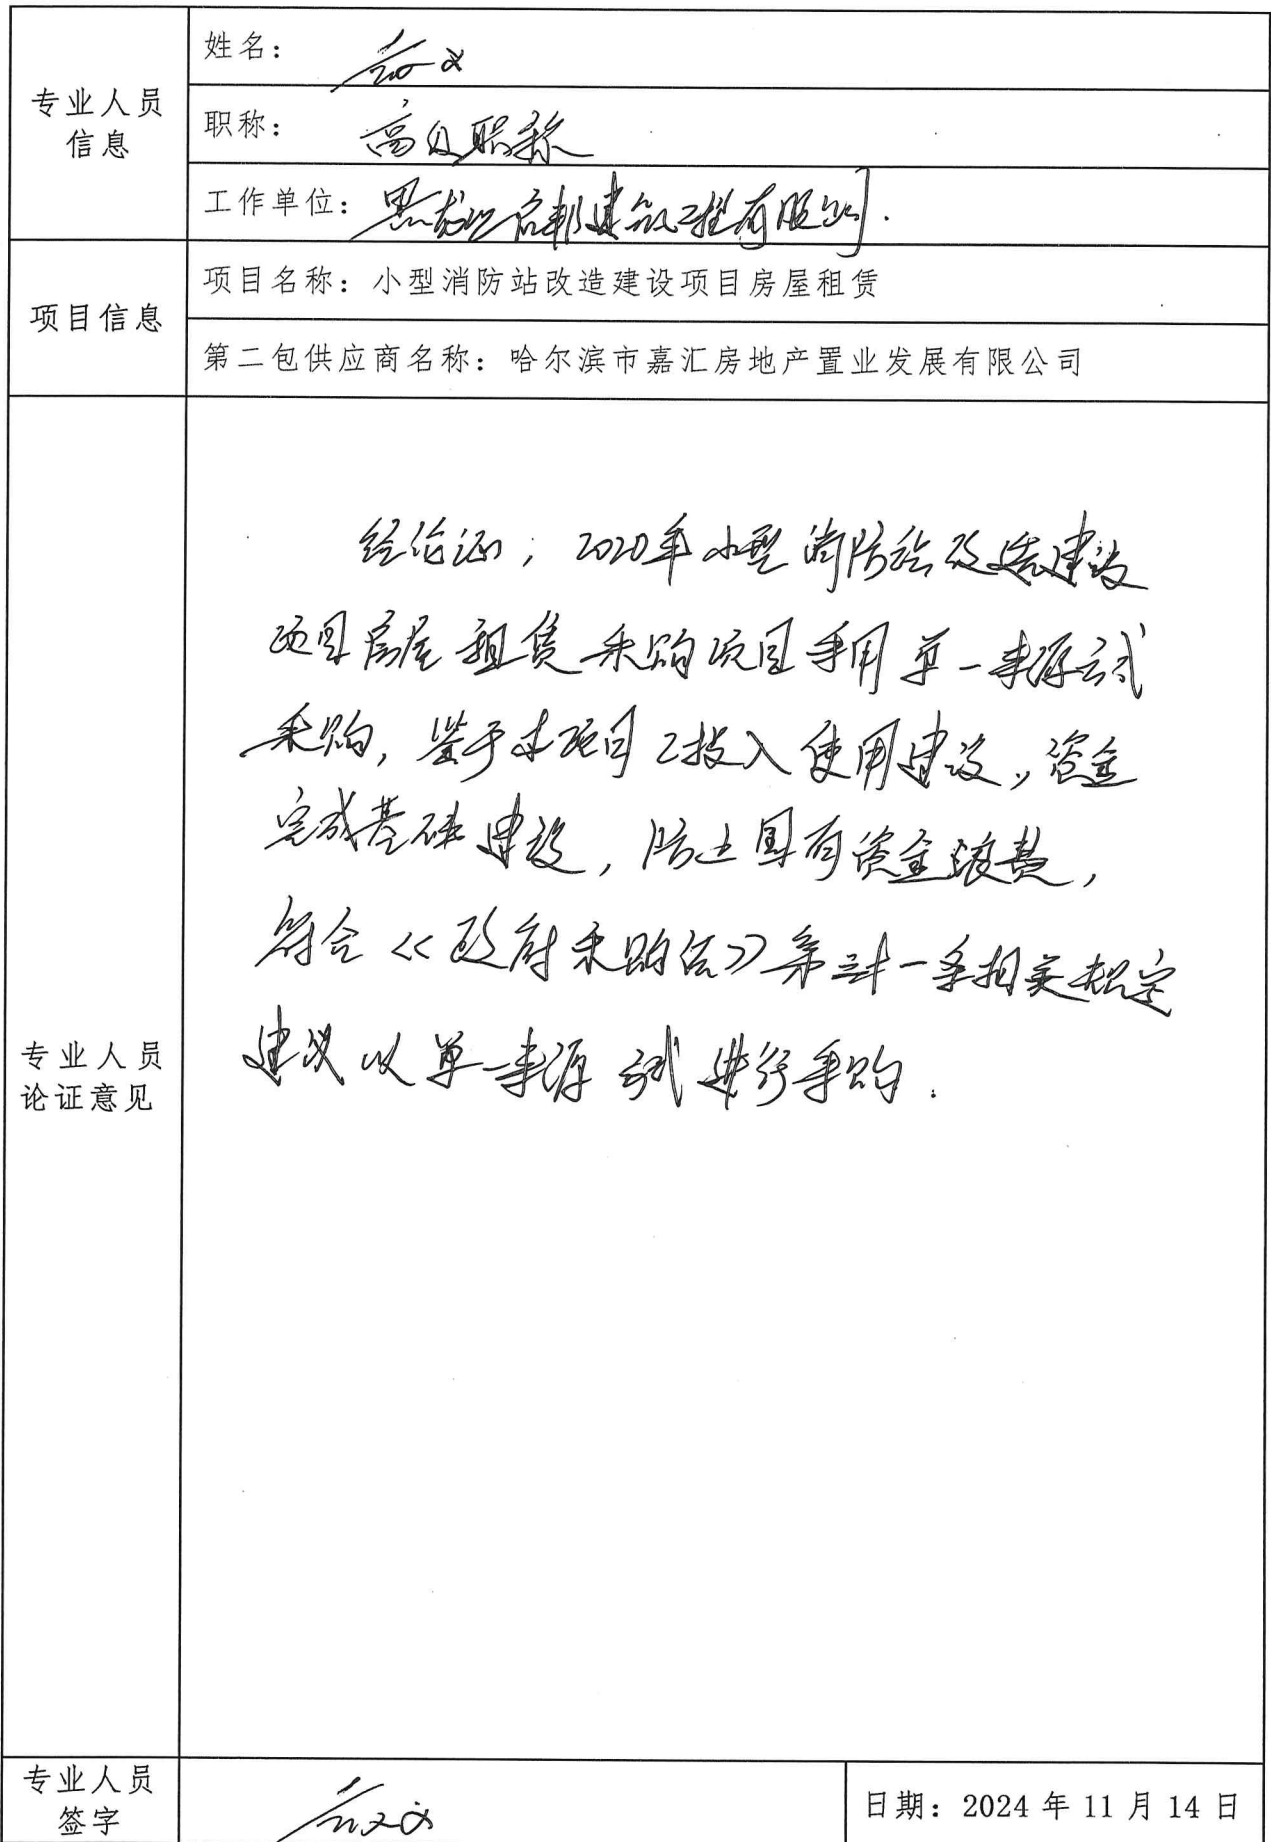 专业人员
信息
姓名：
职称： 高级职称
工作单位： 黑龙江启邦建筑工程有限公司.
项目信息
项目名称：小型消防站改造建设项目房屋租赁
第二包供应商名称：哈尔滨市嘉汇房地产置业发展有限公司
专业人员
论证意见
经论证，2020年小型消防站改造建设
项目房屋租赁采购项目采用单一来源方式
采购，鉴于本项目已投入使用建设，资金
完成基础建设，防止国有资金浪费，
符合《政府采购法》第三十一条相关规定
建议以单一来源方式进行采购.
专业人员
签字
日期：2024年11月14日